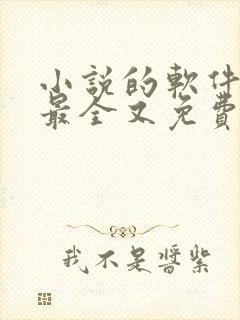 小説的軟件
最全又免費
我不是醬紫